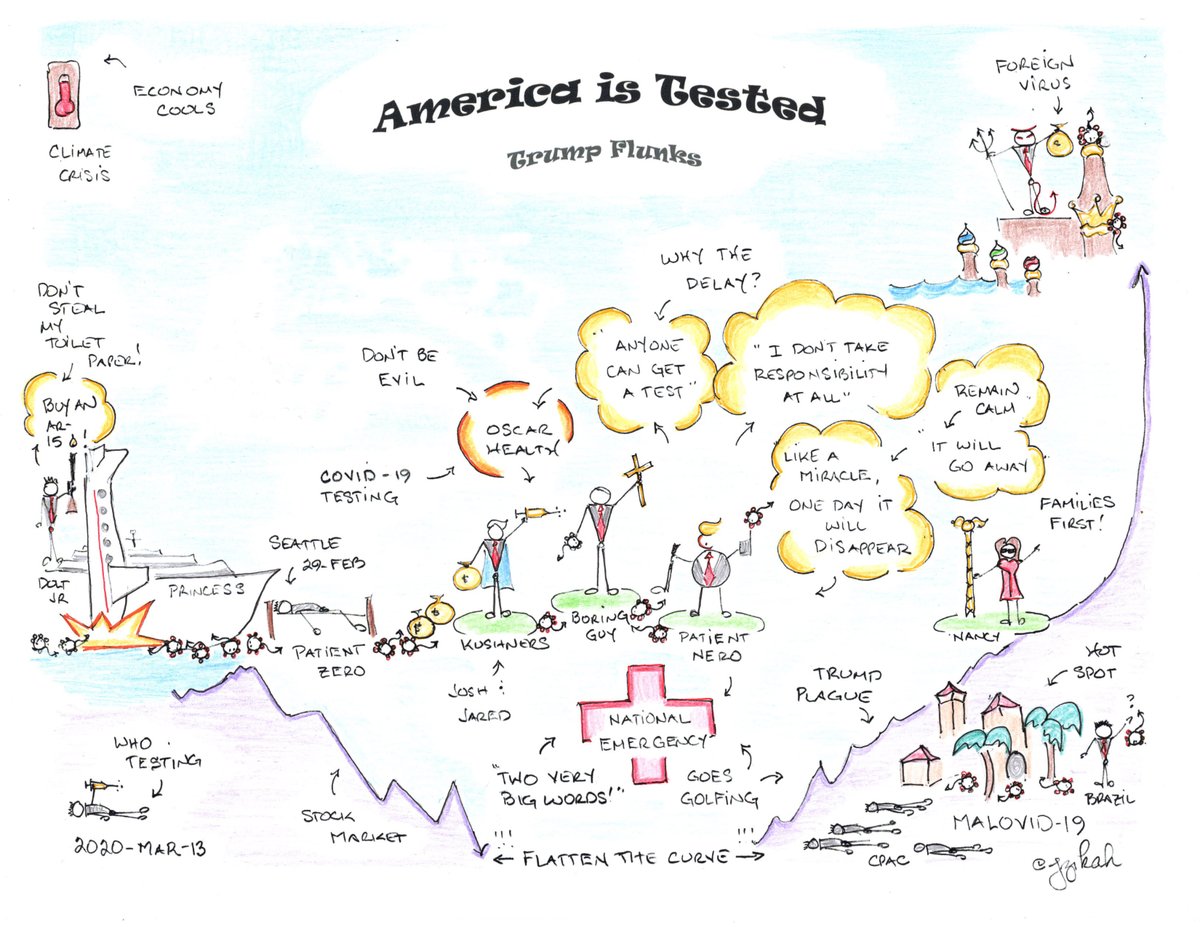 America is Tested
Trump Flunks
ECONOMY
COOLS
CLIMATE
CRISIS
FOREIGN
VIRUS
WHY THE
DELAY?
DON'T
STEAL
MY
TOILET
PAPER!
BUY AN
AR-
15!
DON'T BE
EVIL
OSCAR
HEALTH!
COVID-19
TESTING
ANYONE
CAN GET
A TEST"
"I DON'T TAKE
RESPONSIBILITY
AT ALL"
REMAIN
CALM
"IT WILL
GO AWAY
LIKE A
MIRACLE,
ONE DAY IT
WILL
DISAPPEAR
FAMILIES
FIRST!
DOLT
JR
PRINCESS
SEATTLE
29-FEB
PATIENT
ZERO
KUSHNERS
JOSH :
JARED
BORING
GUY
PATIENT
NERO
NANCY
NATIONAL
EMERGENCY
"TWO VERY
BIG WORDS!"
GOES
GOLFING
TRUMP
PLAGUE
HOT
SPOT
?
?
BRAZIL
MALOVID-19
CPAC
WHO :
TESTING
2020-MAR-13
STOCK
MARKET
!!!
!!!
← FLATTEN THE CURVE →